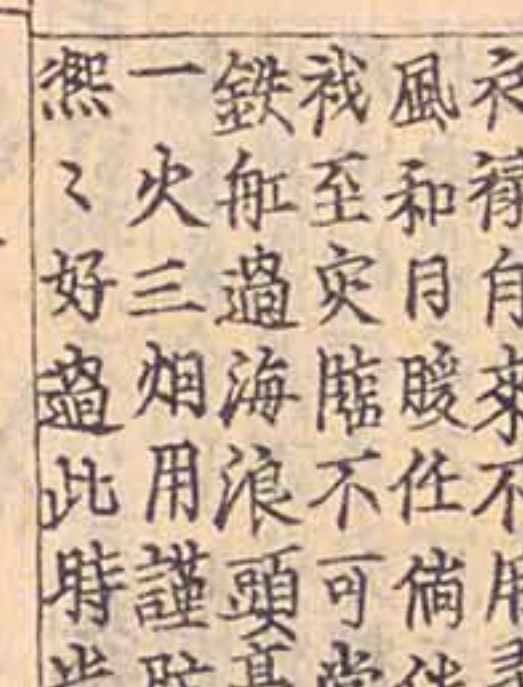 衣祿自來不用
風和日暖任倘
至灾臨不可當
鉄舡過海浪頭高
一火三烟用謹防
熈〻好過此時